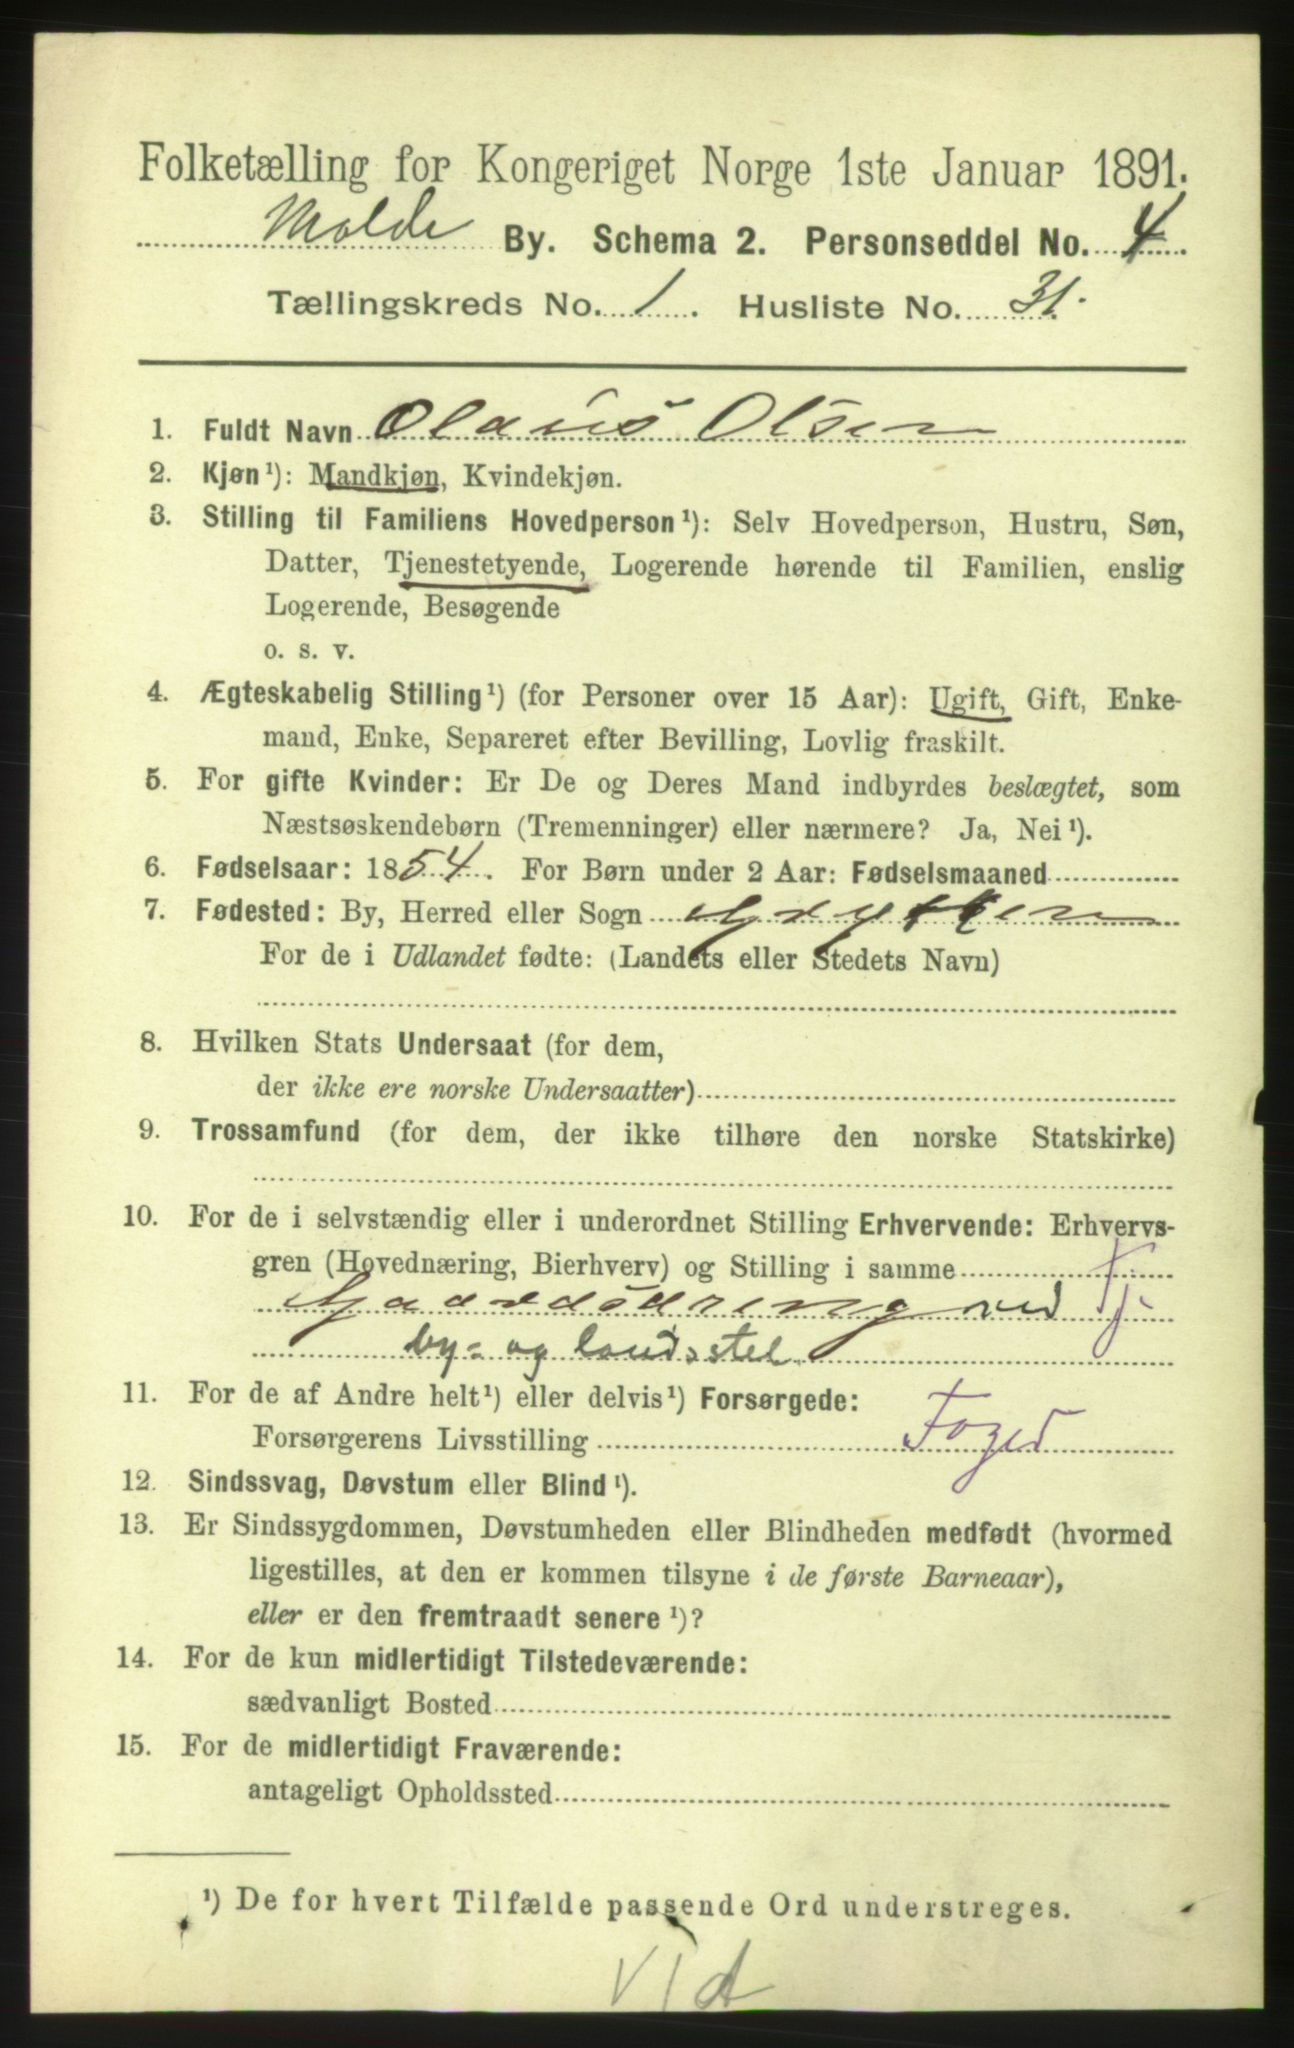 Folketælling for Kongeriget Norge 1ste Januar 1891.
Molde By. Schema 2. Personseddel No. 4
Tællingskreds No. 1. Husliste No. 31.
1. Fuldt Navn Olaus Olsen
2. Kjøn¹): Mandkjøn, Kvindekjøn.
3. Stilling til Familiens Hovedperson¹): Selv Hovedperson, Hustru, Søn,
Datter, Tjenestetyende, Logerende hørende til Familien, enslig
Logerende, Besøgende
o. s. v.
4. Ægteskabelig Stilling¹) (for Personer over 15 Aar): Ugift, Gift, Enke-
mand, Enke, Separeret efter Bevilling, Lovlig fraskilt.
5. For gifte Kvinder: Er De og Deres Mand indbyrdes beslægtet, som
Næstsøskendebørn (Tremenninger) eller nærmere? Ja, Nei¹).
6. Fødselsaar: 1854. For Børn under 2 Aar: Fødselsmaaned
7. Fødested: By, Herred eller Sogn Grytten
For de i Udlandet fødte: (Landets eller Stedets Navn)
8. Hvilken Stats Undersaat (for dem,
der ikke ere norske Undersaatter)
9. Trossamfund (for dem, der ikke tilhøre den norske Statskirke)
10. For de i selvstændig eller i underordnet Stilling Erhvervende: Erhvervs-
gren (Hovednæring, Bierhverv) og Stilling i samme
Gaardsdreng ved Tj
by- og landsstel
11. For de af Andre helt¹) eller delvis¹) Forsørgede:
Forsørgerens Livsstilling Foged
12. Sindssvag, Døvstum eller Blind¹).
13. Er Sindssygdommen, Døvstumheden eller Blindheden medfødt (hvormed
ligestilles, at den er kommen tilsyne i de første Barneaar),
eller er den fremtraadt senere¹)?
14. For de kun midlertidigt Tilstedeværende:
sædvanligt Bosted
15. For de midlertidigt Fraværende:
antageligt Opholdssted
¹) De for hvert Tilfælde passende Ord understreges.